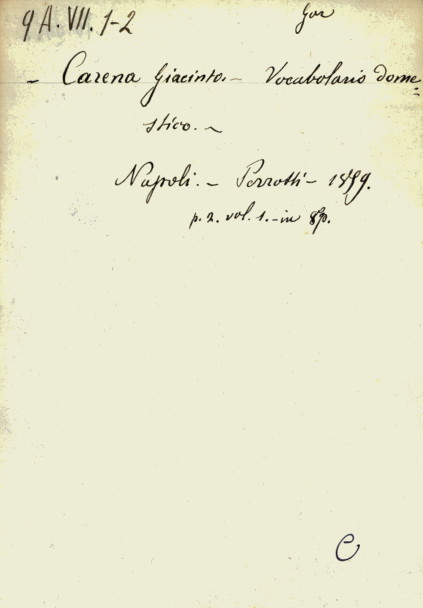 9 A. VII. 1-2
Gor
- Carena Giacinto. - Vocabolario dome=
stico. -
Napoli. - Perrotti - 1859.
p. 2. vol. 1. - in 8º.
C